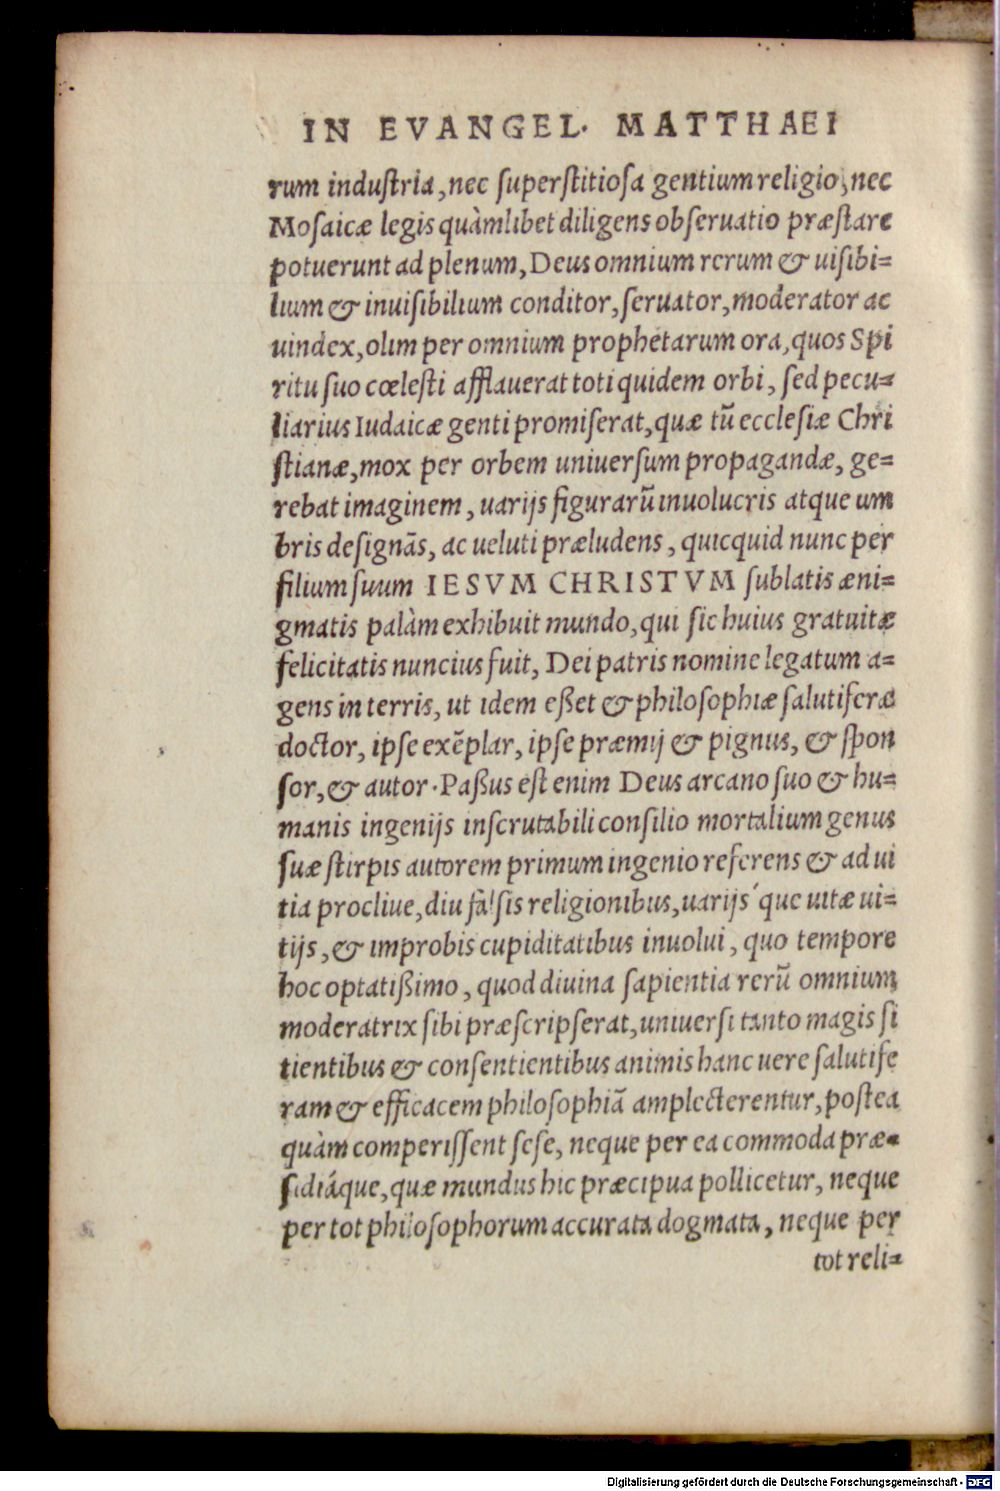 IN EVANGEL. MATTHAEI
rum industria, nec superstitiosa gentium religio, nec
Mosaicæ legis quàmlibet diligens obseruatio præstare
potuerunt ad plenum, Deus omnium rerum & uisibi=
lium & inuisibilium conditor, seruator, moderator ac
uindex, olim per omnium prophetarum ora, quos Spi
ritu suo cœlesti afflauerat toti quidem orbi, sed pecu=
liarius Iudaicæ genti promiserat, quæ tũ ecclesiæ Chri
stianæ, mox per orbem uniuersum propagandæ, ge=
rebat imaginem, uarijs figurarũ inuolucris atque um
bris designãs, ac ueluti præludens, quicquid nunc per
filium suum IESVM CHRISTVM sublatis æni=
gmatis palàm exhibuit mundo, qui sic huius gratuitæ
felicitatis nuncius fuit, Dei patris nomine legatum a=
gens in terris, ut idem eßet & philosophiæ salutiferæ
doctor, ipse exẽplar, ipse præmij & pignus, & spon
sor, & autor. Paßus est enim Deus arcano suo & hu=
manis ingenijs inscrutabili consilio mortalium genus
suæ stirpis autorem primum ingenio referens & ad ui
tia procliue, diu falsis religionibus, uarijs´que uitæ ui=
tijs, & improbis cupiditatibus inuolui, quo tempore
hoc optatißimo, quod diuina sapientia rerũ omnium
moderatrix sibi præscripserat, uniuersi tanto magis si
tientibus & consentientibus animis hanc uere salutife
ram & efficacem philosophiã amplecterentur, postea
quàm comperissent sese, neque per ea commoda præ=
sidiáque, quæ mundus hic præcipua pollicetur, neque
per tot philosophorum accurata dogmata, neque per
tot reli=
Digitalisierung gefördert durch die Deutsche Forschungsgemeinschaft - DFG